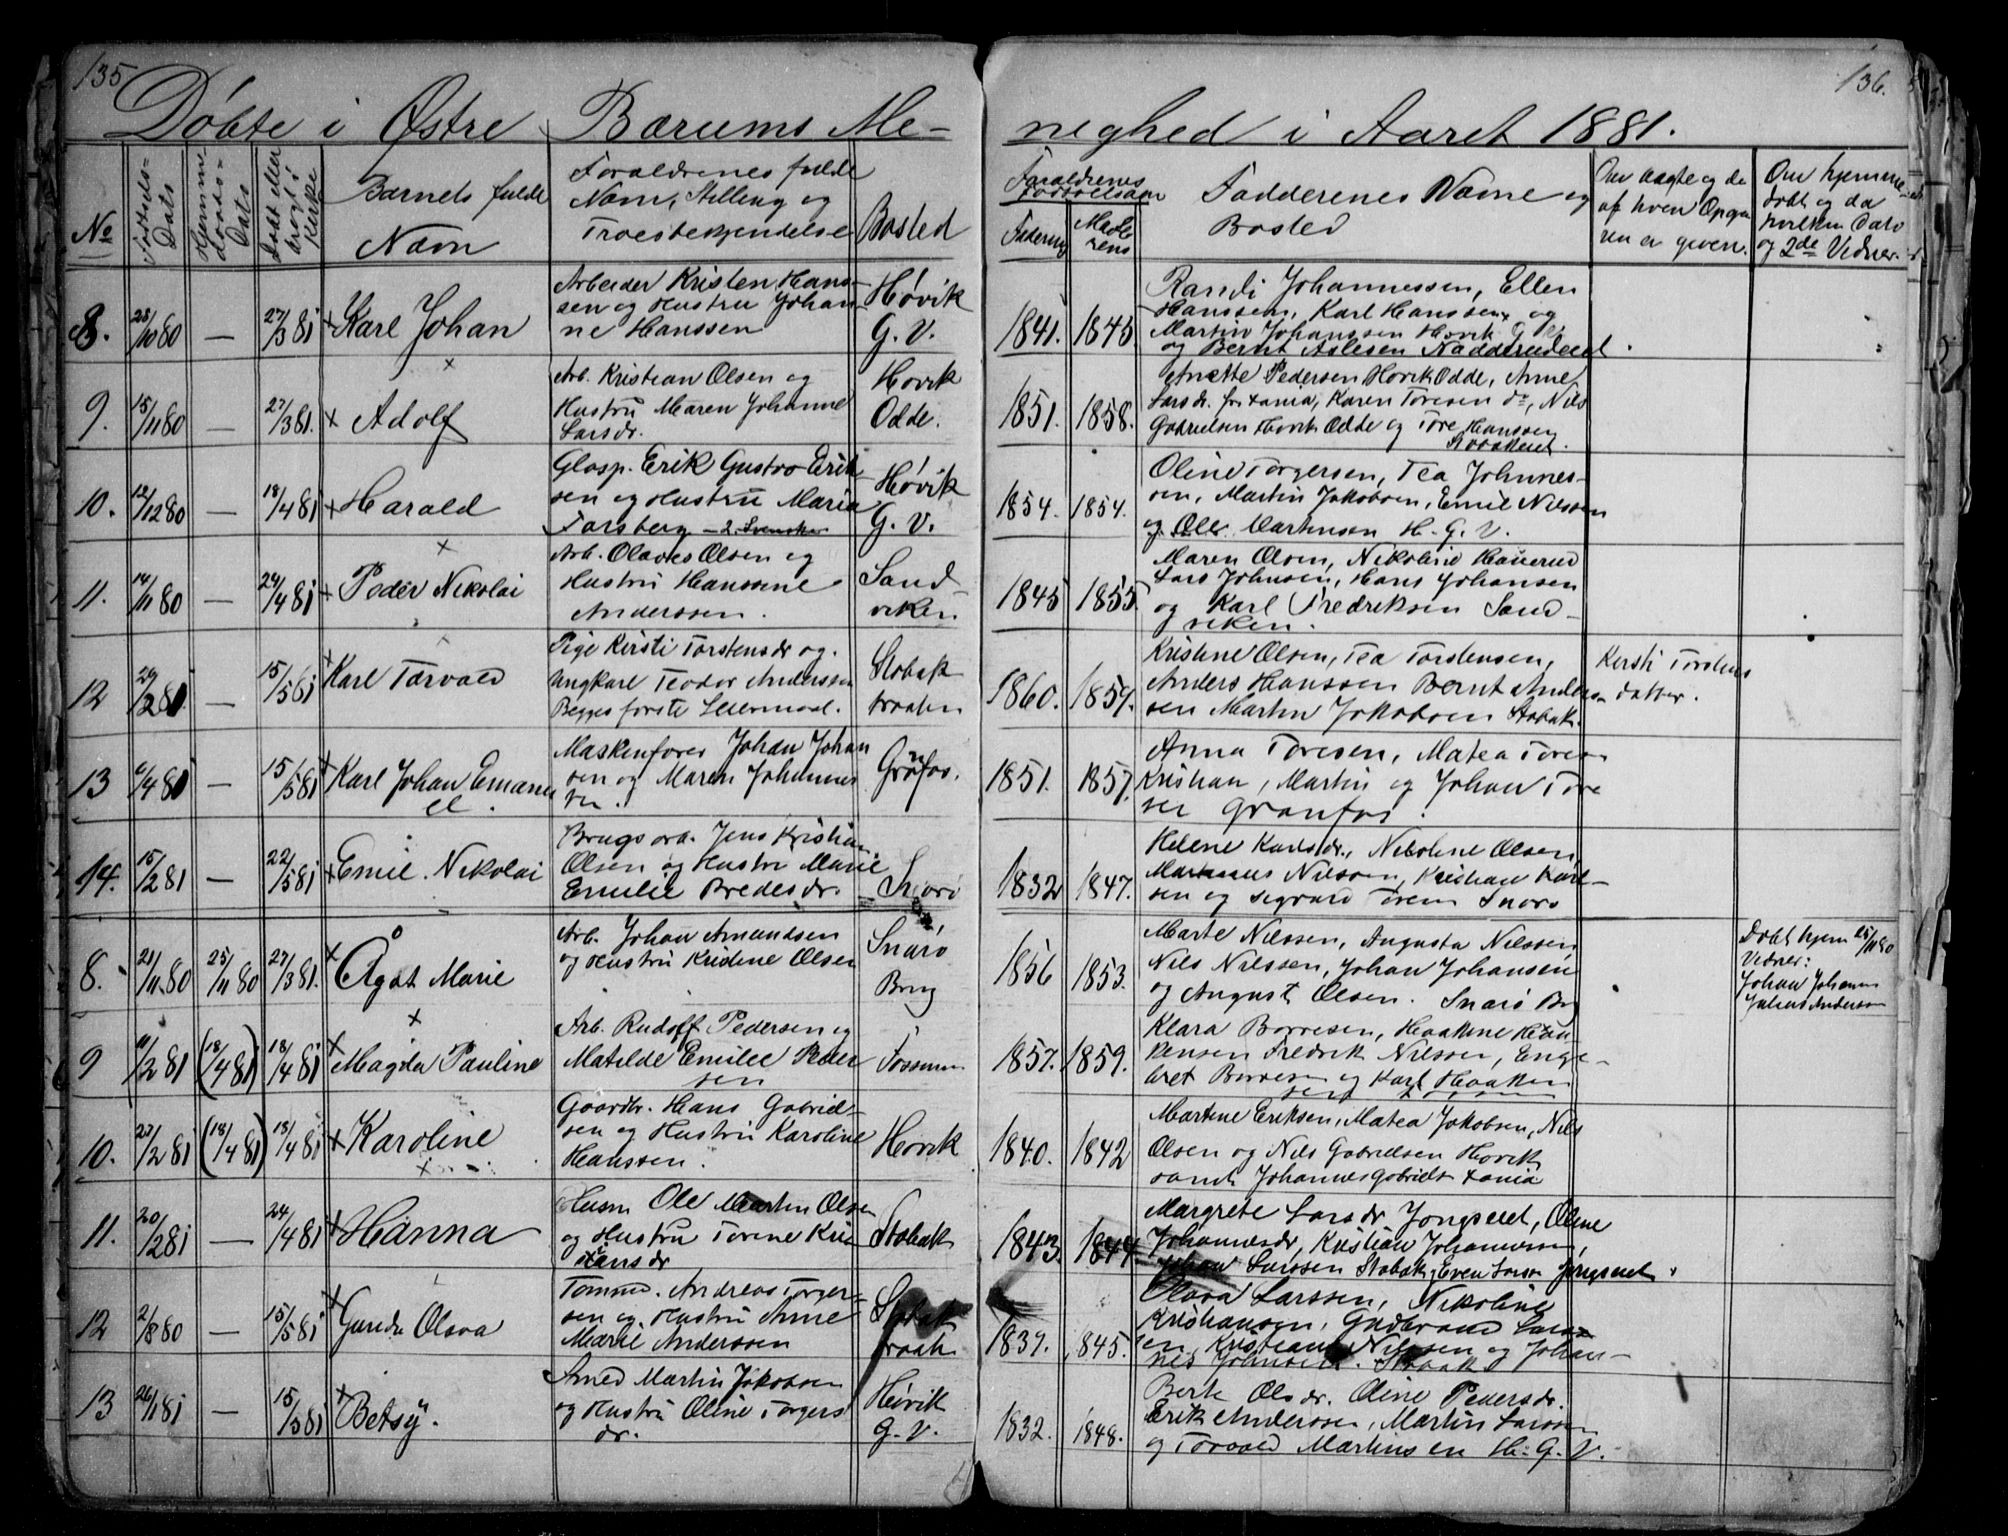 135
136.
Døbte i Østre Bærums Me-
nighed i Aaret 1881.
No
Fødsels-
Dato
Hjemme-
daabs-
Dato
Døbt eller
bragt i
Kirke
Barnets fulde
Navn
Forældrenes fulde
Navn, Stilling og
Troesbekjendelse
Bosted
Forældrenes
Fødselsaar
Faderens
Mode
rens
Faddernes Navne og
Bosted
Om uægte og da
af hvem Opga
ven er given.
Om hjemme
døbt og da
hvilken Dato
og 2de Vidner.
8.
28/10 80
—
27/3 81
Karl Johan
Arbeider Kristen Hans-
sen og Hustru Johan-
ne Hanssen
Høvik
G. V.
1841.
1843
Randi Johannessen, Ellen
Hanssen, Karl Hanssen og
Martin Johanssen Høvik G V
og Bernt Aslesen Nadderudeiet
9.
15/11 80
—
27/3 81.
Adolf
Arb. Kristian Olsen og
Hustru Maren Johanne
Larsdr.
Høvik
Odde.
1851.
1858.
Anette Pedersen Høvik Odde, Anne
Larsdr. Kr.tania, Karen Toresen do, Nils
Gabrielsen Høvik Odde og Tore Hanssen
10.
12/12 80
—
18/4 81
Harald
Glasp. Erik Gustav Erik
sen og Hustru Maria
Forsberg – 2. Svensker
Høvik
G. V.
1854.
1854.
Oline Torgersen, Tea Johnnes-
sen, Martin Jakobsen, Emil Nilssen
og Ole Martinsen H. G. V.
11.
14/11 80
—
24/4 81
Peder Nikolai
Arb. Olaves Olsen og
Hustru Hanssine
Anderssen.
Sand
viken
1845
1855
Maren Olsen, Nikoline Hauerud
Lars Johnsen, Hans Johansen
og Karl Fredriksen Sand-
viken.
12
29/2 81.
—
15/5 81
Karl Torvald
Pige Kersti Torstensdr og
Ungkarl Teodor Anderssen
Begges første Leiermaal.
Stabæk
traaten
1860.
1859.
Kristine Olsen, Tea Torstensen,
Anders Hanssen Bernt Anders-
sen Martin Jakobsen Stabæk.
Kersti Torstens
datter.
13
6/4 81
—
15/5 81
Karl Johan Emanu
el.
Maskenfører Johan Johan
sen og Maren Johannes
sen.
Granfos.
1851.
1857.
Anna Toresen, Matea Tores
Kristian, Martin og Johan Tore
sen Granfos.
14.
15/2 81
—
22/5 81
Emil. Nikolai
Brugsarb. Jens Kristian
Olsen og Hustru Marie
Emilie Bredesdr.
Snarø
1832
1847.
Helene Karlsdr., Nikoline Olsen,
Markus Nilssen, Kristian Karl-
sen og Sigvard Toresen Snarø
8.
21/11 80
25/11 80
27/3 81.
Ågot Marie
Arb. Johan Amundsen
og Hustru Kristine Olsen
Snarø
Brug
1856
1853.
Marte Nilssen, Augusta Nilssen
Nils Nilssen, Johan Johansen
og August Olsen. Snarø Br
Døbt hjem 25/11 80
Vidner:
Johan Johans
Julius Anderssen
9
11/2 81
(18/4 81)
18/4 81
Magda Pauline
Arb. Rudolf Pedersen og
Matilde Emilie Peder
sen
Fossum
1857.
1859.
Klara Borresen, Haakine Haa-
kensen Fredrik Nilssen, Enge-
bret Borresen og Karl Haaken
sen Fossum
10.
27/2 81
(18/4 81)
18/4 81
Karoline
Gaardbr. Hans Gabriel-
sen og Hustru Karoline
Hanssen.
Høvik
1840.
1842
Martine Eriksen, Matea Jakobsen, Nils
Olsen og Nils Gabrielsen Høvik
samt Johannes Gabriels. Xania
11.
20/2 81
—
24/4 81
Hanna
Husm Ole Martin Olsen
og Hustru Torine Kris
tiansdr
Stabæk
1843.
1844
Margrete Larsdr Jongseiet, Oline
Johannesdr, Kristian Johannessen,
Johan Larssen Stabæk, Even Larsen Jongseiet
12
2/8 80
—
15/5 81
Gunda Olava
Tømm. Andreas Torger-
sen og Hustru Anne
Marie Anderssen
Stabæk
traaten
1839.
1845.
Olava Larssen, Nikoline
Kristiansen, Gudbrand Lars-
sen, Kristian Nilssen og Johan-
nes Johnsen. Stabæk
13
26/1 81
—
15/5 81
Betsy.
Smed Martin Jakobsen
og Hustru Oline Torgers
dr.
Høvik
G. V.
1832.
1848.
Berte Olsdr. Oline Pedersdr.
Erik Anderssen, Martin Larssen
og Torvald Martinsen H. G. V.